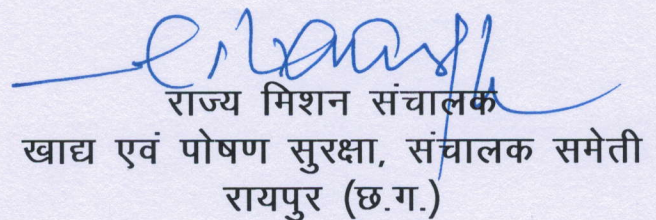 राज्य मिशन संचालक
खाद्य एवं पोषण सुरक्षा, संचालक समेती
रायपुर (छ.ग.)